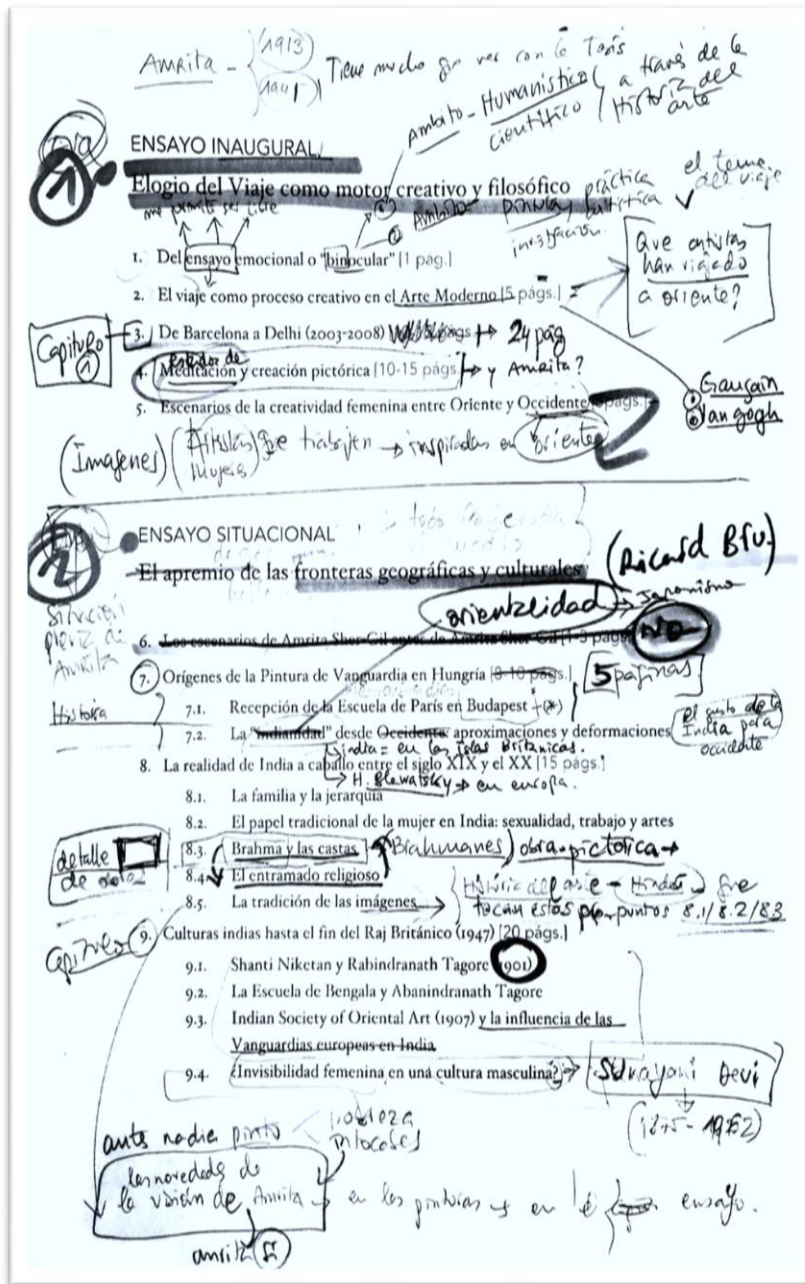 Amrita - (1913)
(1941) Tiene mucho que ver con la Tesis
Ambito - Humanístico a través de la
científico Historia del arte
1
ENSAYO INAUGURAL
Elogio del Viaje como motor creativo y filosófico
práctica
el tema del viaje
me permite ser libre
Ambito
artística
investigación
1. Del ensayo emocional o "binocular" [1 pág.]
2. El viaje como proceso creativo en el Arte Moderno [5 págs.]
Que artistas
han viajado
a oriente?
Capitulo 1
3. De Barcelona a Delhi (2003-2008)
24 pág
4. Meditación y creación pictórica [10-15 págs.] y Amrita?
5. Escenarios de la creatividad femenina entre Oriente y Occidente págs.]
Gauguin
Van gogh
(Imagenes) (Artistas que trabajen → inspiradas en oriente
Mujeres)
2
ENSAYO SITUACIONAL
El apremio de las fronteras geográficas y culturales
(Ricard Bru)
orientalidad → Japonismo
situación
previa de
Amrita
6. Los escenarios de Amrita Sher-Gil antes de Amrita Sher-Gil [1-3 págs.]
NO
7. Orígenes de la Pintura de Vanguardia en Hungría [8-10 págs.] [5 paginas]
Historia
7.1. Recepción de la Escuela de París en Budapest - (*)
7.2. La "indianidad" desde Occidente: aproximaciones y deformaciones
el gusto de la
India para
occidente
india = en las islas Britanicas.
8. La realidad de India a caballo entre el siglo XIX y el XX [15 págs.]
→ H. Blewatsky → en europa.
8.1. La familia y la jerarquía
8.2. El papel tradicional de la mujer en India: sexualidad, trabajo y artes
detalle
de
8.3. Brahma y las castas (Brahmanes) obra pictotica →
8.4. El entramado religioso
8.5. La tradición de las imágenes →
Historia del arte - Hindú → que
tocan estos puntos 8.1/8.2/83
Capitulo
9. Culturas indias hasta el fin del Raj Británico (1947) [20 págs.]
9.1. Shanti Niketan y Rabindranath Tagore (1901)
9.2. La Escuela de Bengala y Abanindranath Tagore
9.3. Indian Society of Oriental Art (1907) y la influencia de las
Vanguardias europeas en India
9.4. ¿Invisibilidad femenina en una cultura masculina? → Sunayani Devi
(1875 - 1962)
ants nadie pinto
pobreza
las novedads de
la visión de Amrita → en las pinturas → en ensayo.
amrita